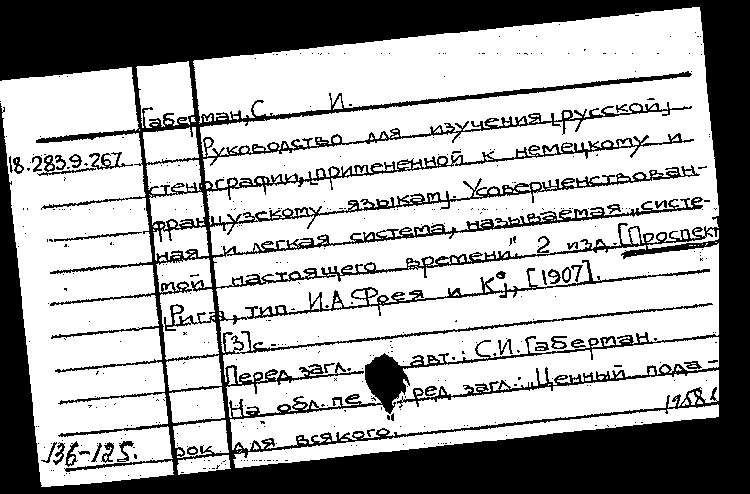 Габерман, С. И.
18.283.9.267. Руководство для изучения [русской]
стенографии, [примененной к немецкому и
французскому языкам]. Усовершенствован-
ная и легкая система, называемая "систе-
мой настоящего времени". 2 изд. [Проспект]
[Рига, тип. И.А. Фрея и К°], [1907].
[3] с.
Перед загл. авт.: С.И. Габерман.
На обл. пе ред загл.: "Ценный пода-
136-125. рок для всякого.